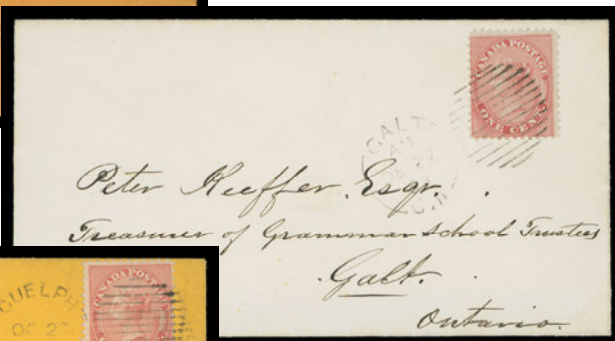 CANADA POSTAGE
ONE CENT
GALT
AM
DE 27
Peter Keeffer. Esqr.
Treasurer of Grammar School Trustees
Galt.
Ontario.
GUELPH
OC 2
CANADA POSTAGE